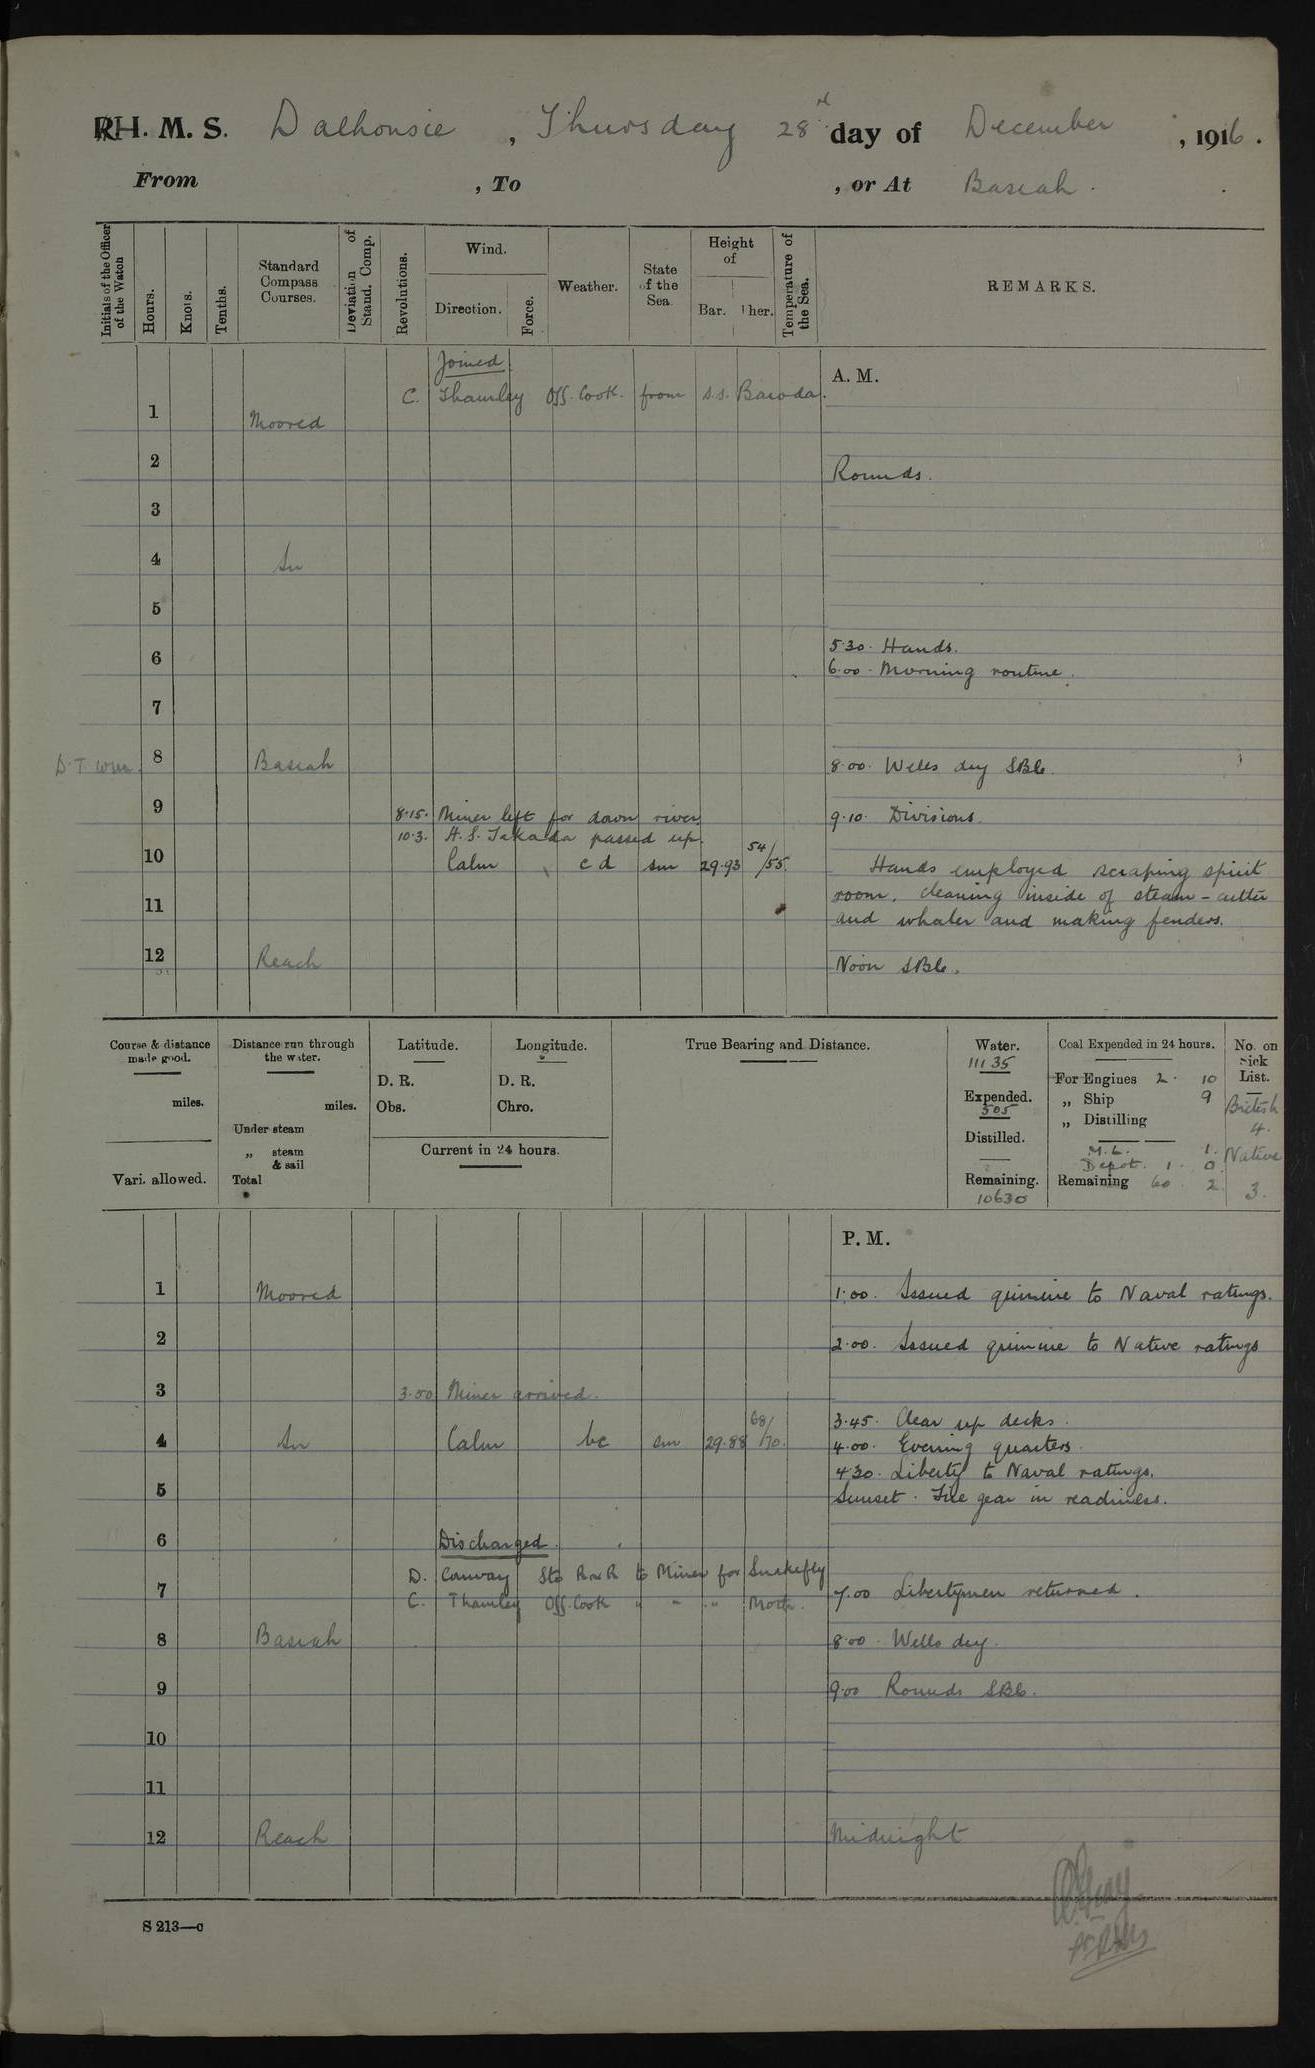 R H. M. S. Dalhousie, Thursday 28 day of December, 1916.
From , To , or At Basrah.
Initials of the Officer of the Watch
Hours.
Knots.
Tenths.
Standard Compass Courses.
Deviation of Stand. Comp.
Revolutions.
Wind.
Direction.
Force.
Weather.
State of the Sea.
Height of
Bar. Ther.
Temperature of the Sea.
REMARKS.
Joined
A. M.
C. Thamley Off. Cook. from s.s. Baroda.
1 Moored
2 Rounds.
3
4 In
5
5.30. Hands.
6 6.00. Morning routine.
7
8 Basrah 8.00. Wells dry SB6.
9 8.15. Miner left for down river 9.10. Divisions.
10.3. H.S. Takada passed up.
10 Calm c d sm 29.93 54/55. Hands employed scraping spirit
11 room, cleaning inside of steam-cutter
and whaler and making fenders.
12 Reach Noon SB6.
Course & distance made good.
miles.
Vari. allowed.
Distance run through the water.
miles.
Under steam
„ steam & sail
Total
Latitude.
D. R.
Obs.
Longitude.
D. R.
Chro.
Current in 24 hours.
True Bearing and Distance.
Water.
11135
Expended.
505
Distilled.
Remaining.
10630
Coal Expended in 24 hours.
For Engines 2. 10
„ Ship 9
„ Distilling
M.L. 1.
Depot. 1. 0.
Remaining 60. 2.
No. on Sick List.
British
4.
Native
3.
P. M.
1 Moored 1.00. Issued quinine to Naval ratings.
2 2.00. Issued quinine to Native ratings
3 3.00 Miner arrived.
3.45. Clear up decks.
4 In Calm bc sm 29.88 68/70. 4.00. Evening quarters.
4.30. Liberty to Naval ratings.
5 Sunset. Fire gear in readiness.
6 Discharged.
D. Conway Sto RNR to Miner for Snakefly
7 7.00 Libertymen returned.
C. Thamley Off. Cook " " " Moth.
8 Basrah 8.00. Wells dry.
9 9.00 Rounds SB6.
10
11
12 Reach Midnight
S 213—c